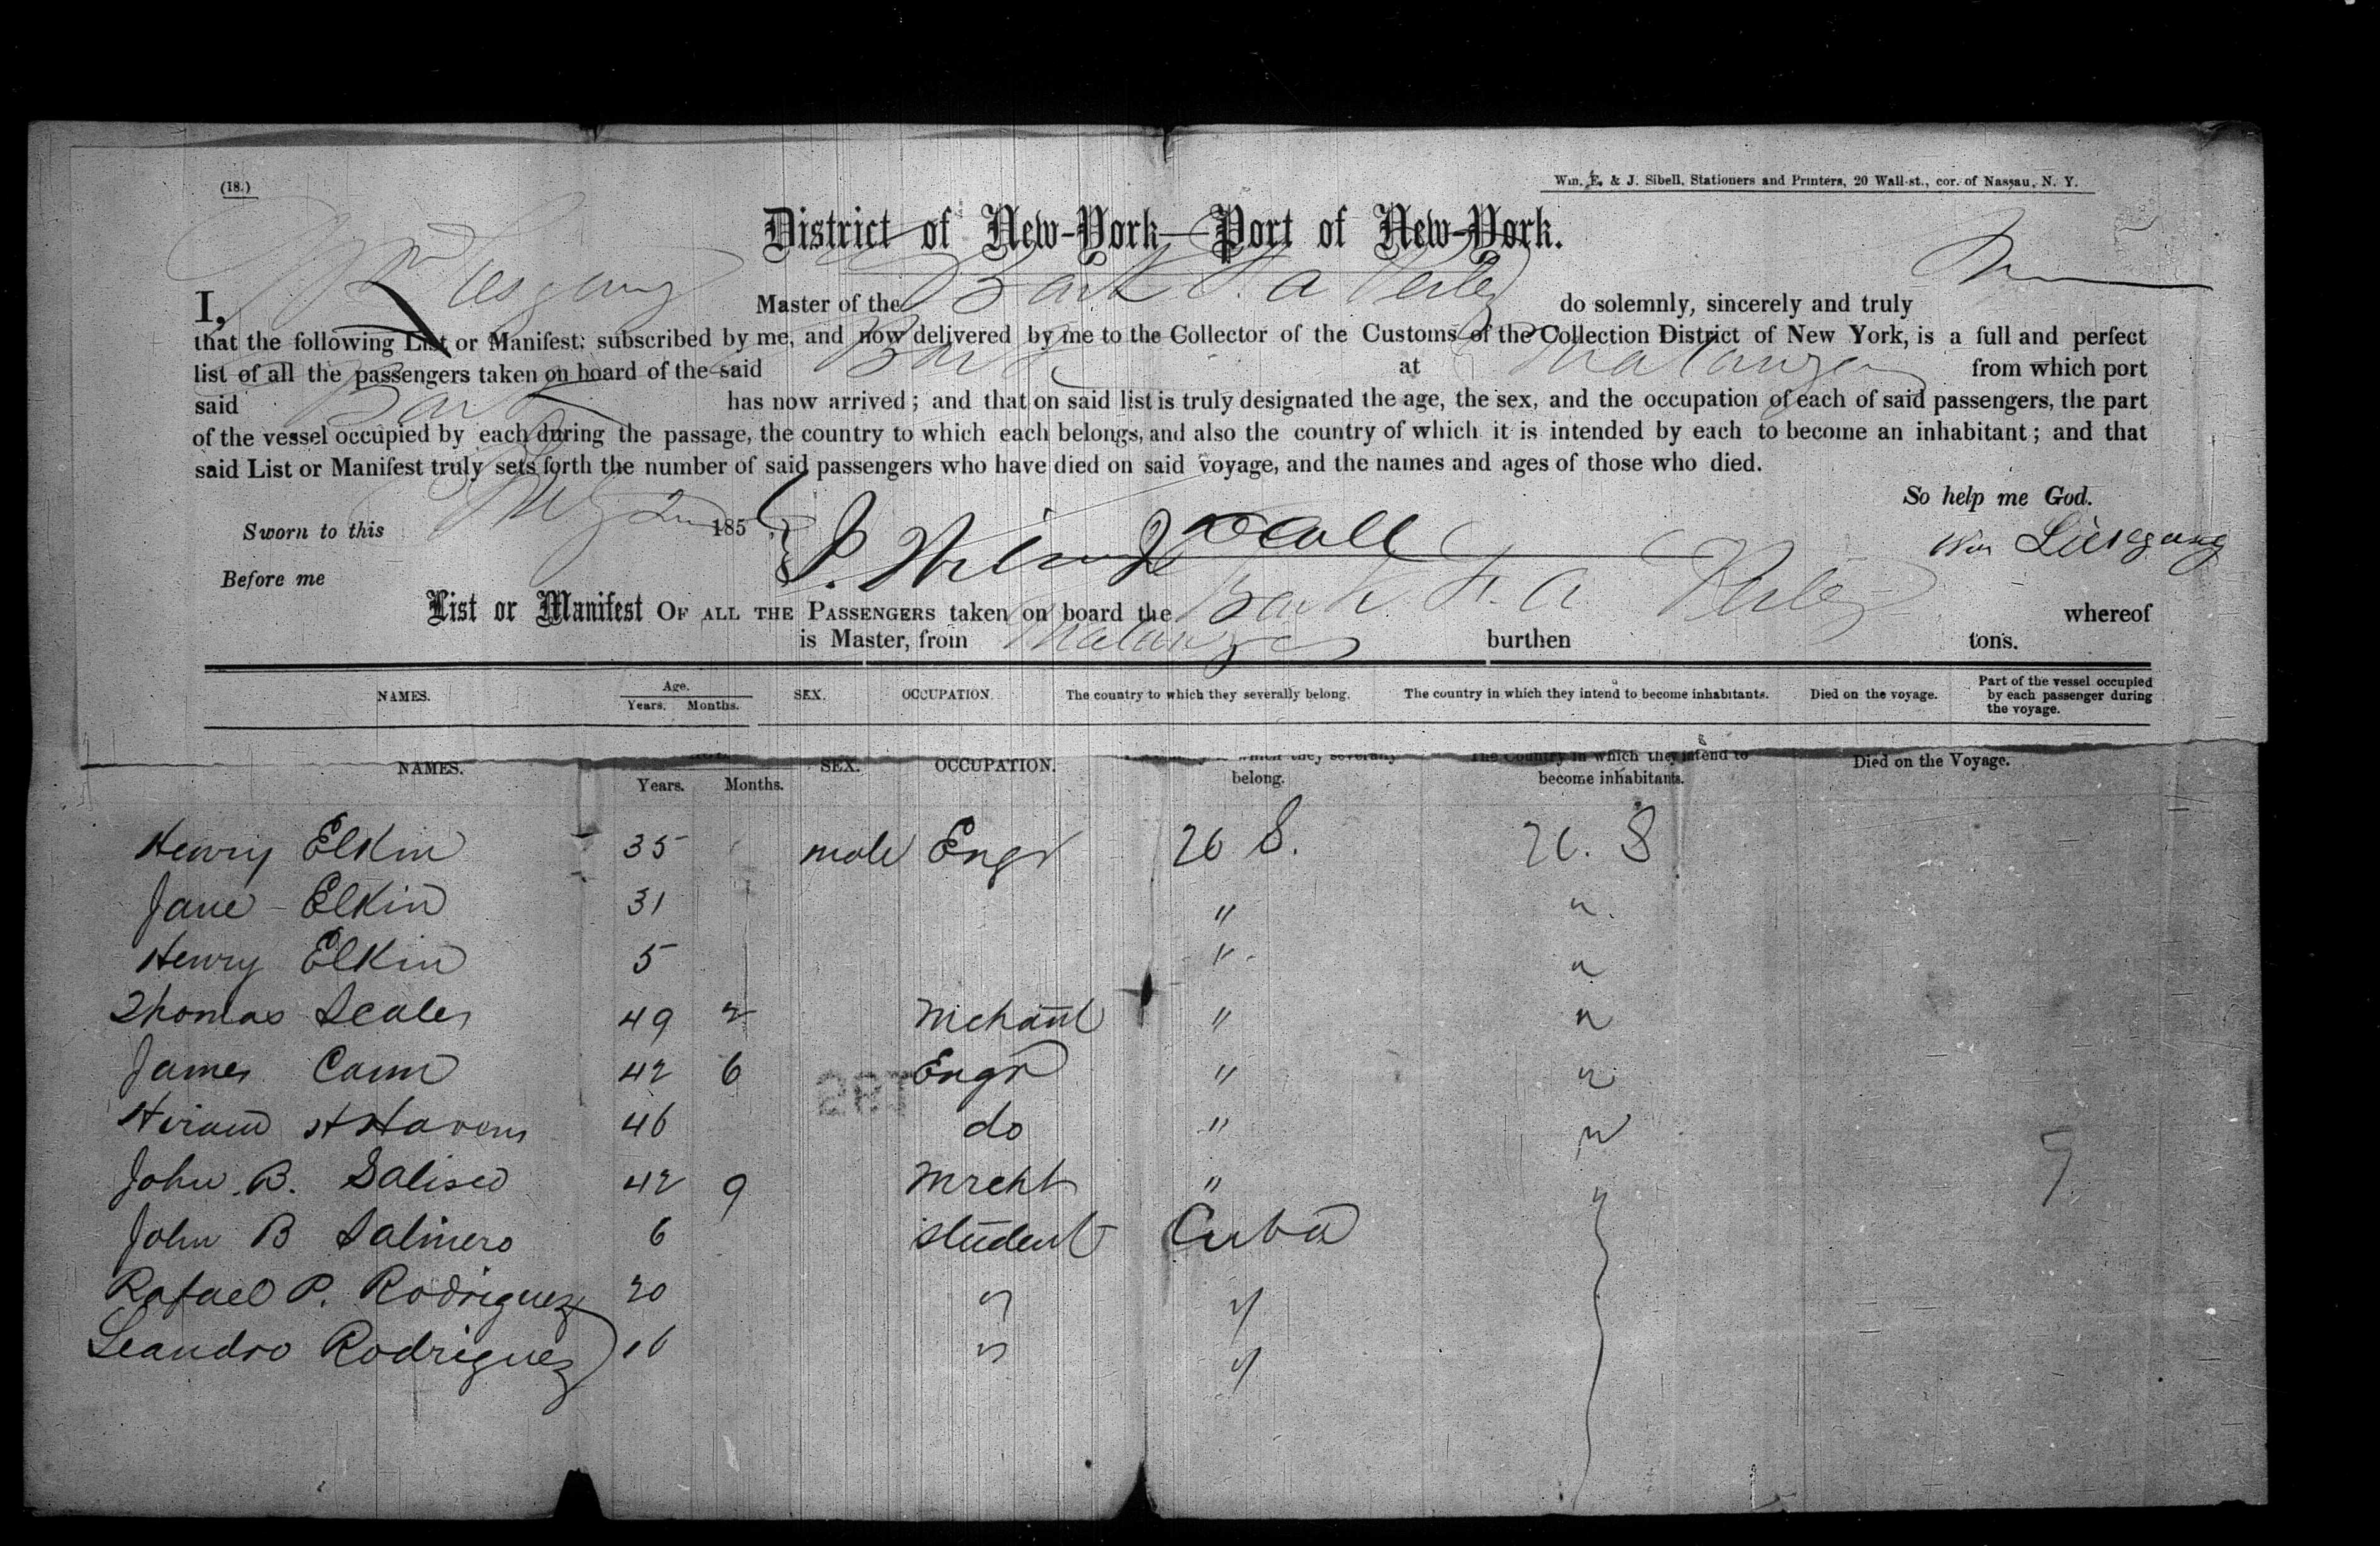 (18.)
Wm. E. & J. Sibell, Stationers and Printers, 20 Wall-st., cor. of Nassau, N. Y.
District of New-York—Port of New-York.
I, Wm Liesegang Master of the Bark F. A Perley do solemnly, sincerely and truly
that the following List or Manifest; subscribed by me, and now delivered by me to the Collector of the Customs of the Collection District of New York, is a full and perfect
list of all the passengers taken on board of the said Bark at Matanzas from which port
said Bark has now arrived; and that on said list is truly designated the age, the sex, and the occupation of each of said passengers, the part
of the vessel occupied by each during the passage, the country to which each belongs, and also the country of which it is intended by each to become an inhabitant; and that
said List or Manifest truly sets forth the number of said passengers who have died on said voyage, and the names and ages of those who died.
So help me God.
Sworn to this 185
Wm Liesegang
Before me
List or Manifest OF ALL THE PASSENGERS taken on board the Bark F. A Perley whereof
is Master, from Matanzas burthen tons.
NAMES. Age. Years. Months. SEX. OCCUPATION. The country to which they severally belong. The country in which they intend to become inhabitants. Died on the voyage. Part of the vessel occupied by each passenger during the voyage.
NAMES. Years. Months. SEX. OCCUPATION. which they severally belong. The Country in which they intend to become inhabitants. Died on the Voyage.
Henry Elkin 35 male Engr U S. U. S
Jane Elkin 31 " "
Henry Elkin 5 " "
Thomas Scales 49 2 Mchant " "
James Cann 42 6 Engr " "
Hiram H Havens 46 do " "
John B. 42 9 Mrcht " "
John B Salinero 6 student Cuba
Rafael P. Rodriguez 20 " "
Leandro Rodriguez 16 " "